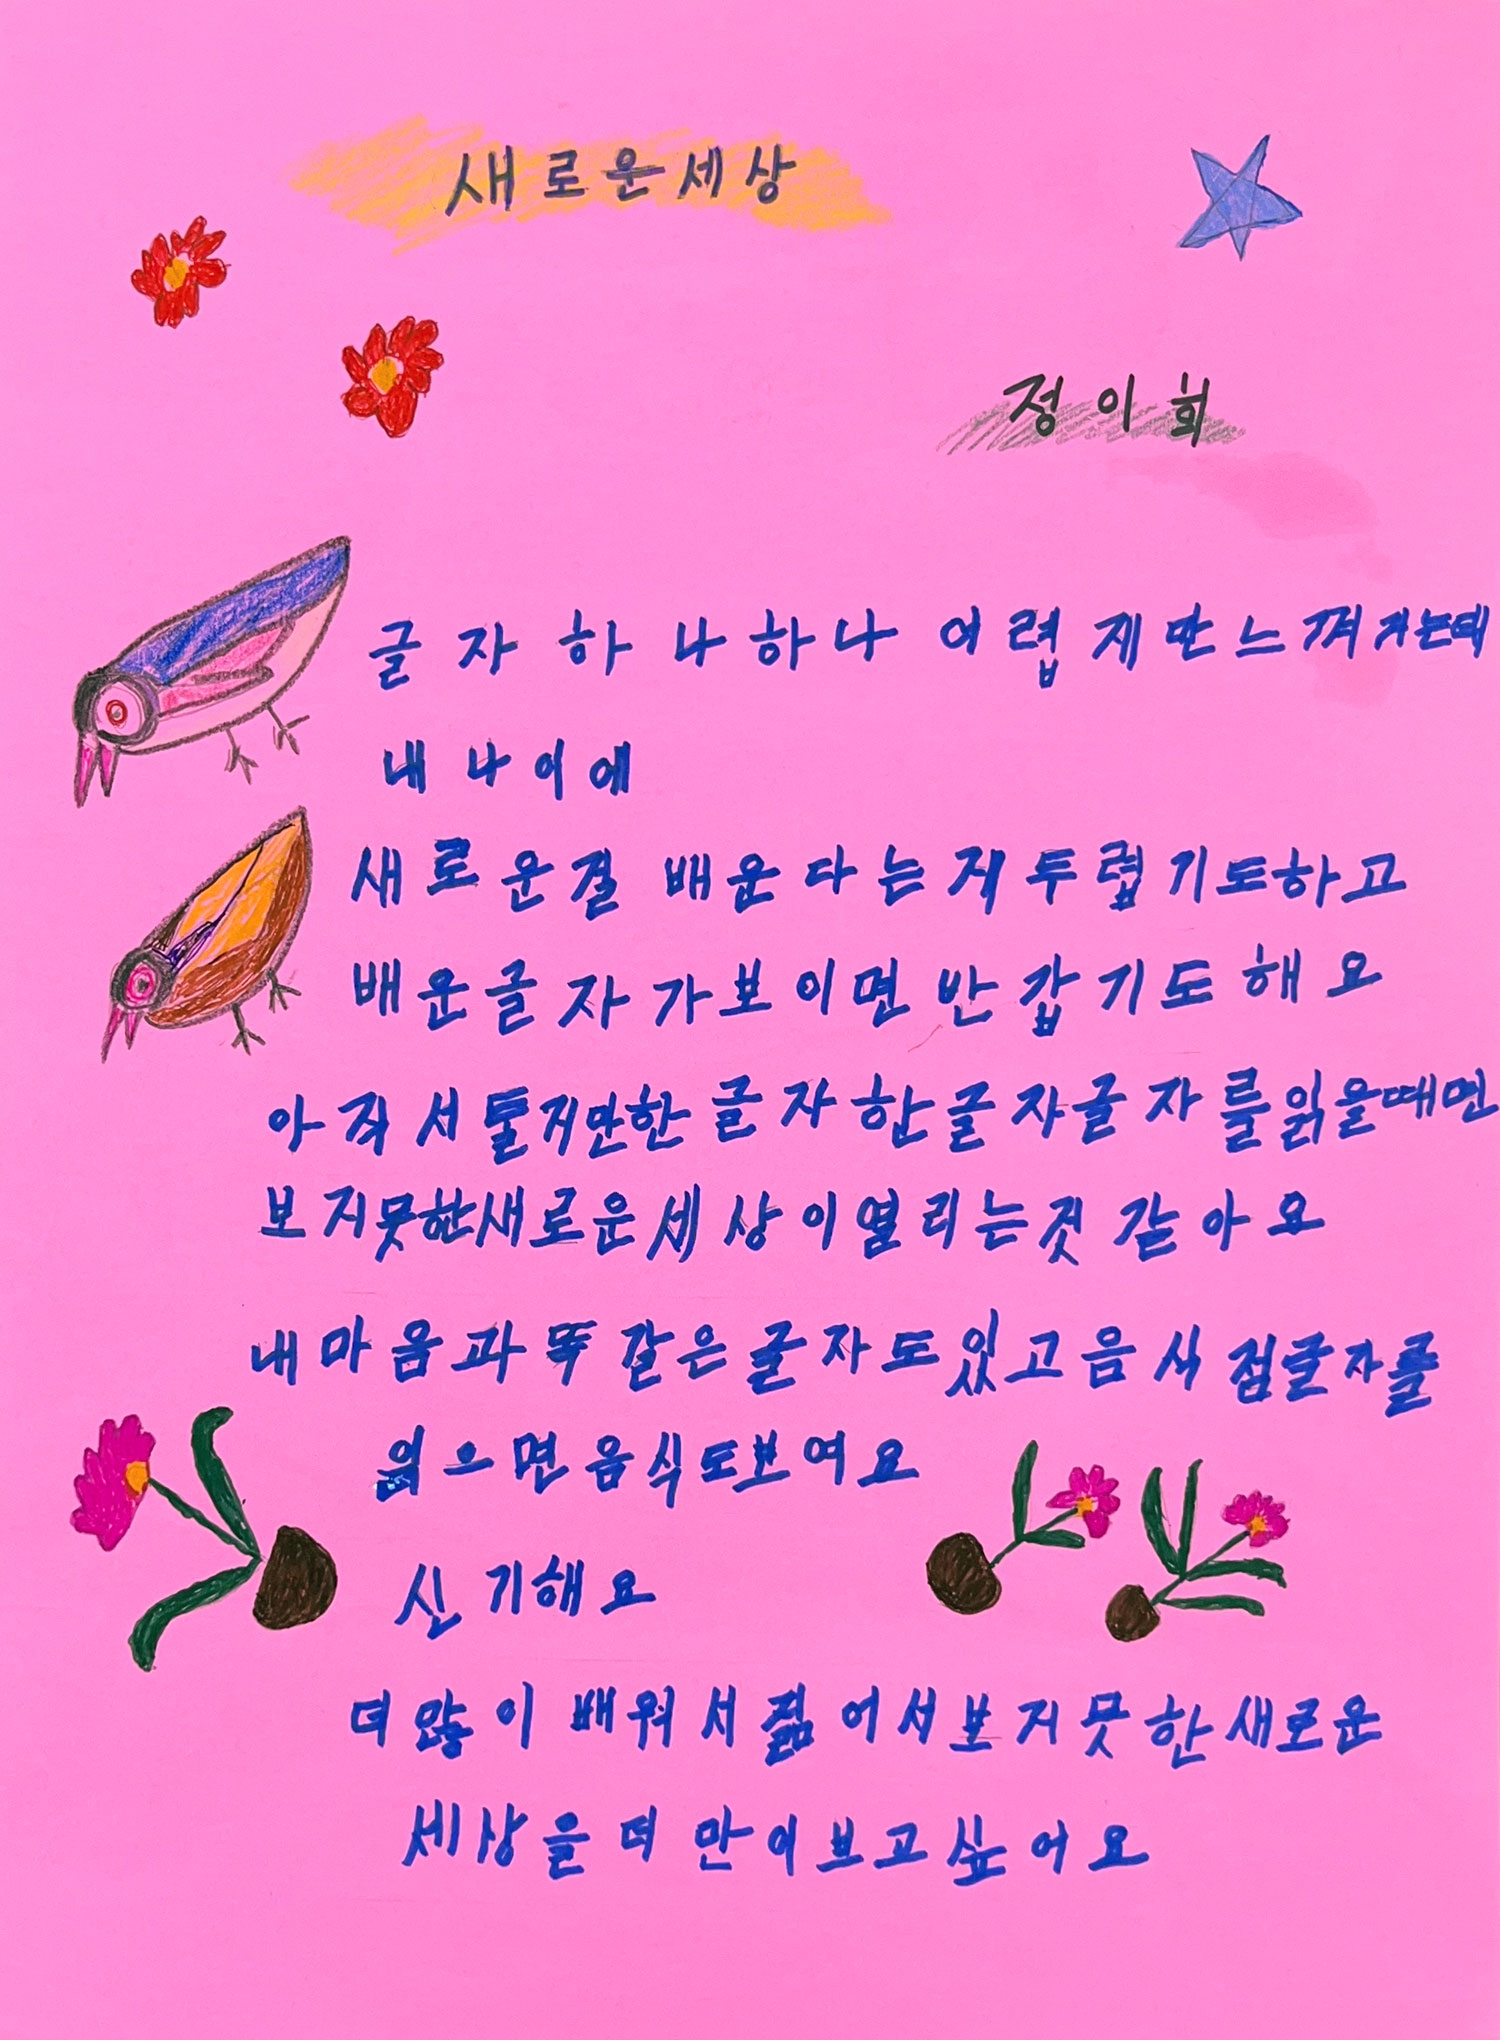 새로운세상
정이희
글자하나하나 어렵게만느껴지는데
내나이에
새로운걸 배운다는게두렵기도하고
배운글자가보이면반갑기도해요
아직서툴지만한글자한글자글자를읽을때면
보지못한새로운세상이열리는것같아요
내마음과똑같은글자도있고음식점글자를
읽으면음식도보여요
신기해요
더많이배워서젊어서보지못한새로운
세상을더만이보고싶어요